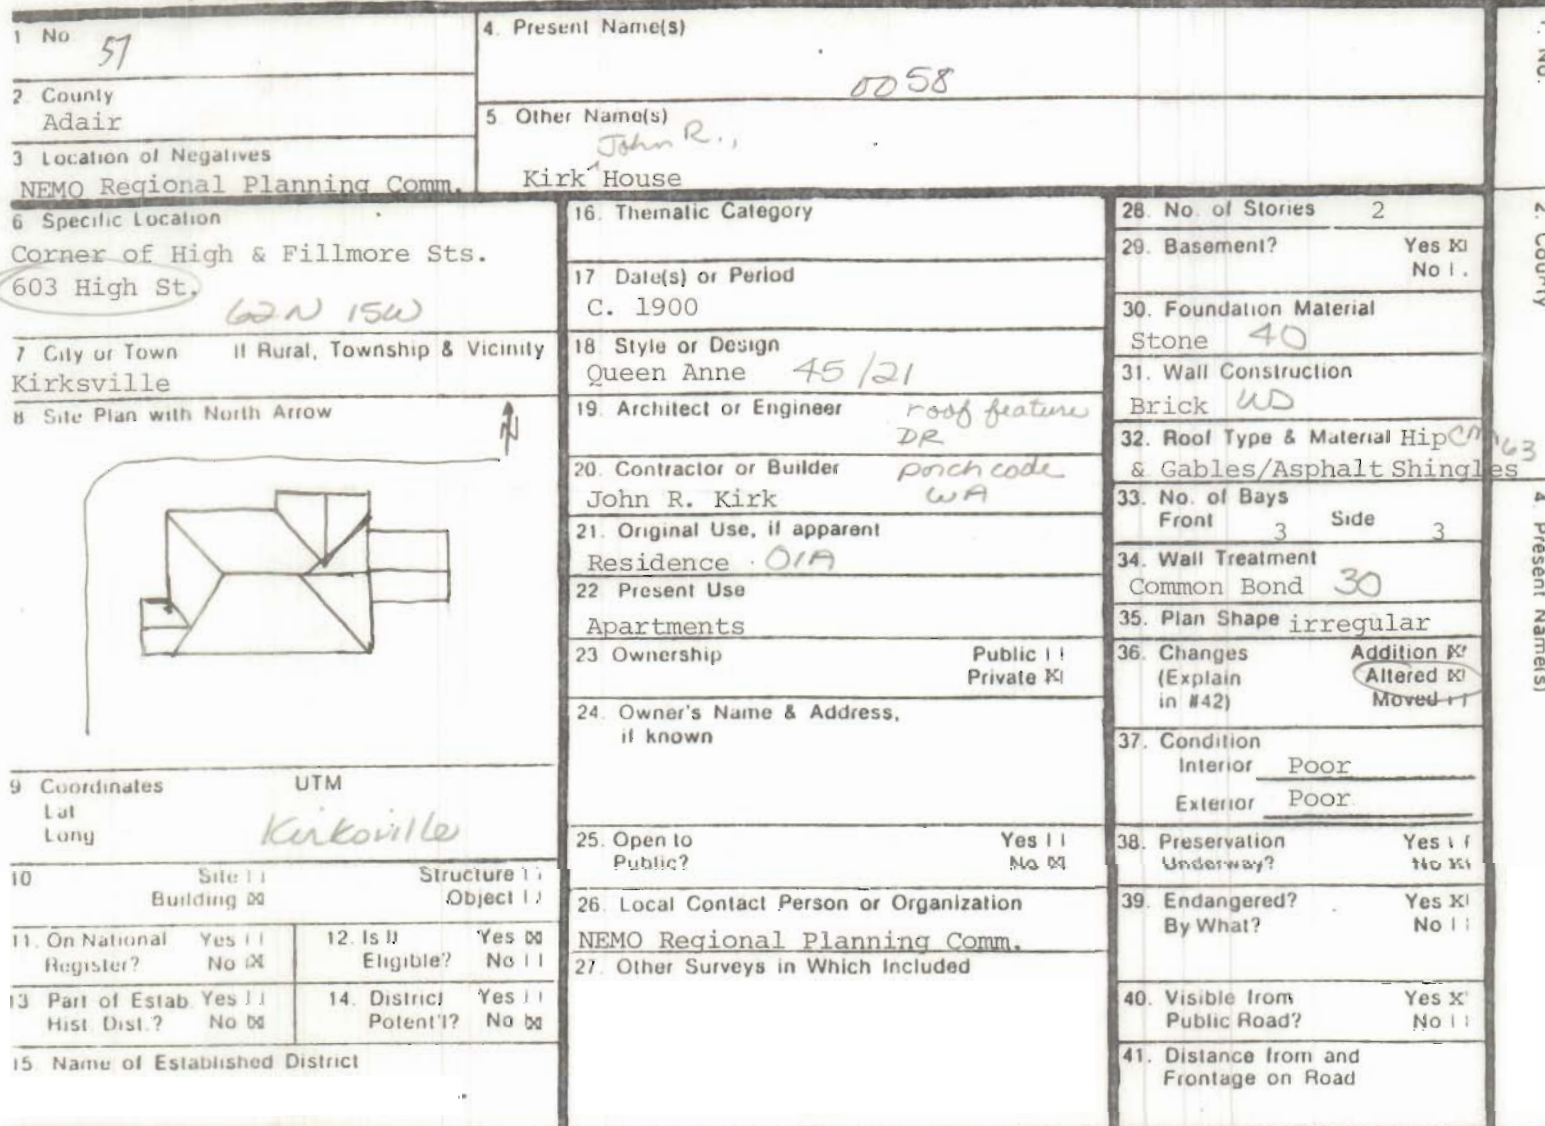 1 No 57
2 County
Adair
3 Location of Negatives
NEMO Regional Planning Comm.
4. Present Name(s)
0058
5 Other Name(s)
John R.,
Kirk ^ House
6 Specific Location
Corner of High & Fillmore Sts.
603 High St.
62N 15W
7 City or Town If Rural, Township & Vicinity
Kirksville
8 Site Plan with North Arrow
N
9 Coordinates UTM
Lat
Long
Kirksville
10 Site Structure
Building Object
11. On National Yes
Register? No X
12. Is It Yes X
Eligible? No
13 Part of Estab. Yes
Hist. Dist.? No X
14. District Yes
Potent'l? No X
15 Name of Established District
16. Thematic Category
17 Date(s) or Period
C. 1900
18 Style or Design
Queen Anne 45/21
19. Architect or Engineer roof feature
DR
20. Contractor or Builder porch code
John R. Kirk WA
21. Original Use, if apparent
Residence 01A
22 Present Use
Apartments
23 Ownership Public
Private X
24. Owner's Name & Address,
if known
25. Open to Yes
Public? No X
26. Local Contact Person or Organization
NEMO Regional Planning Comm.
27. Other Surveys in Which Included
28. No. of Stories 2
29. Basement? Yes X
No
30. Foundation Material
Stone 40
31. Wall Construction
Brick WD
32. Roof Type & Material Hip 63
& Gables/Asphalt Shingles
33. No. of Bays
Front 3 Side 3
34. Wall Treatment
Common Bond 30
35. Plan Shape irregular
36. Changes Addition X
(Explain Altered X
in #42) Moved
37. Condition
Interior Poor
Exterior Poor
38. Preservation Yes
Underway? No X
39. Endangered? Yes X
By What? No
40. Visible from Yes X
Public Road? No
41. Distance from and
Frontage on Road
1. No.
2. County
4. Present Name(s)